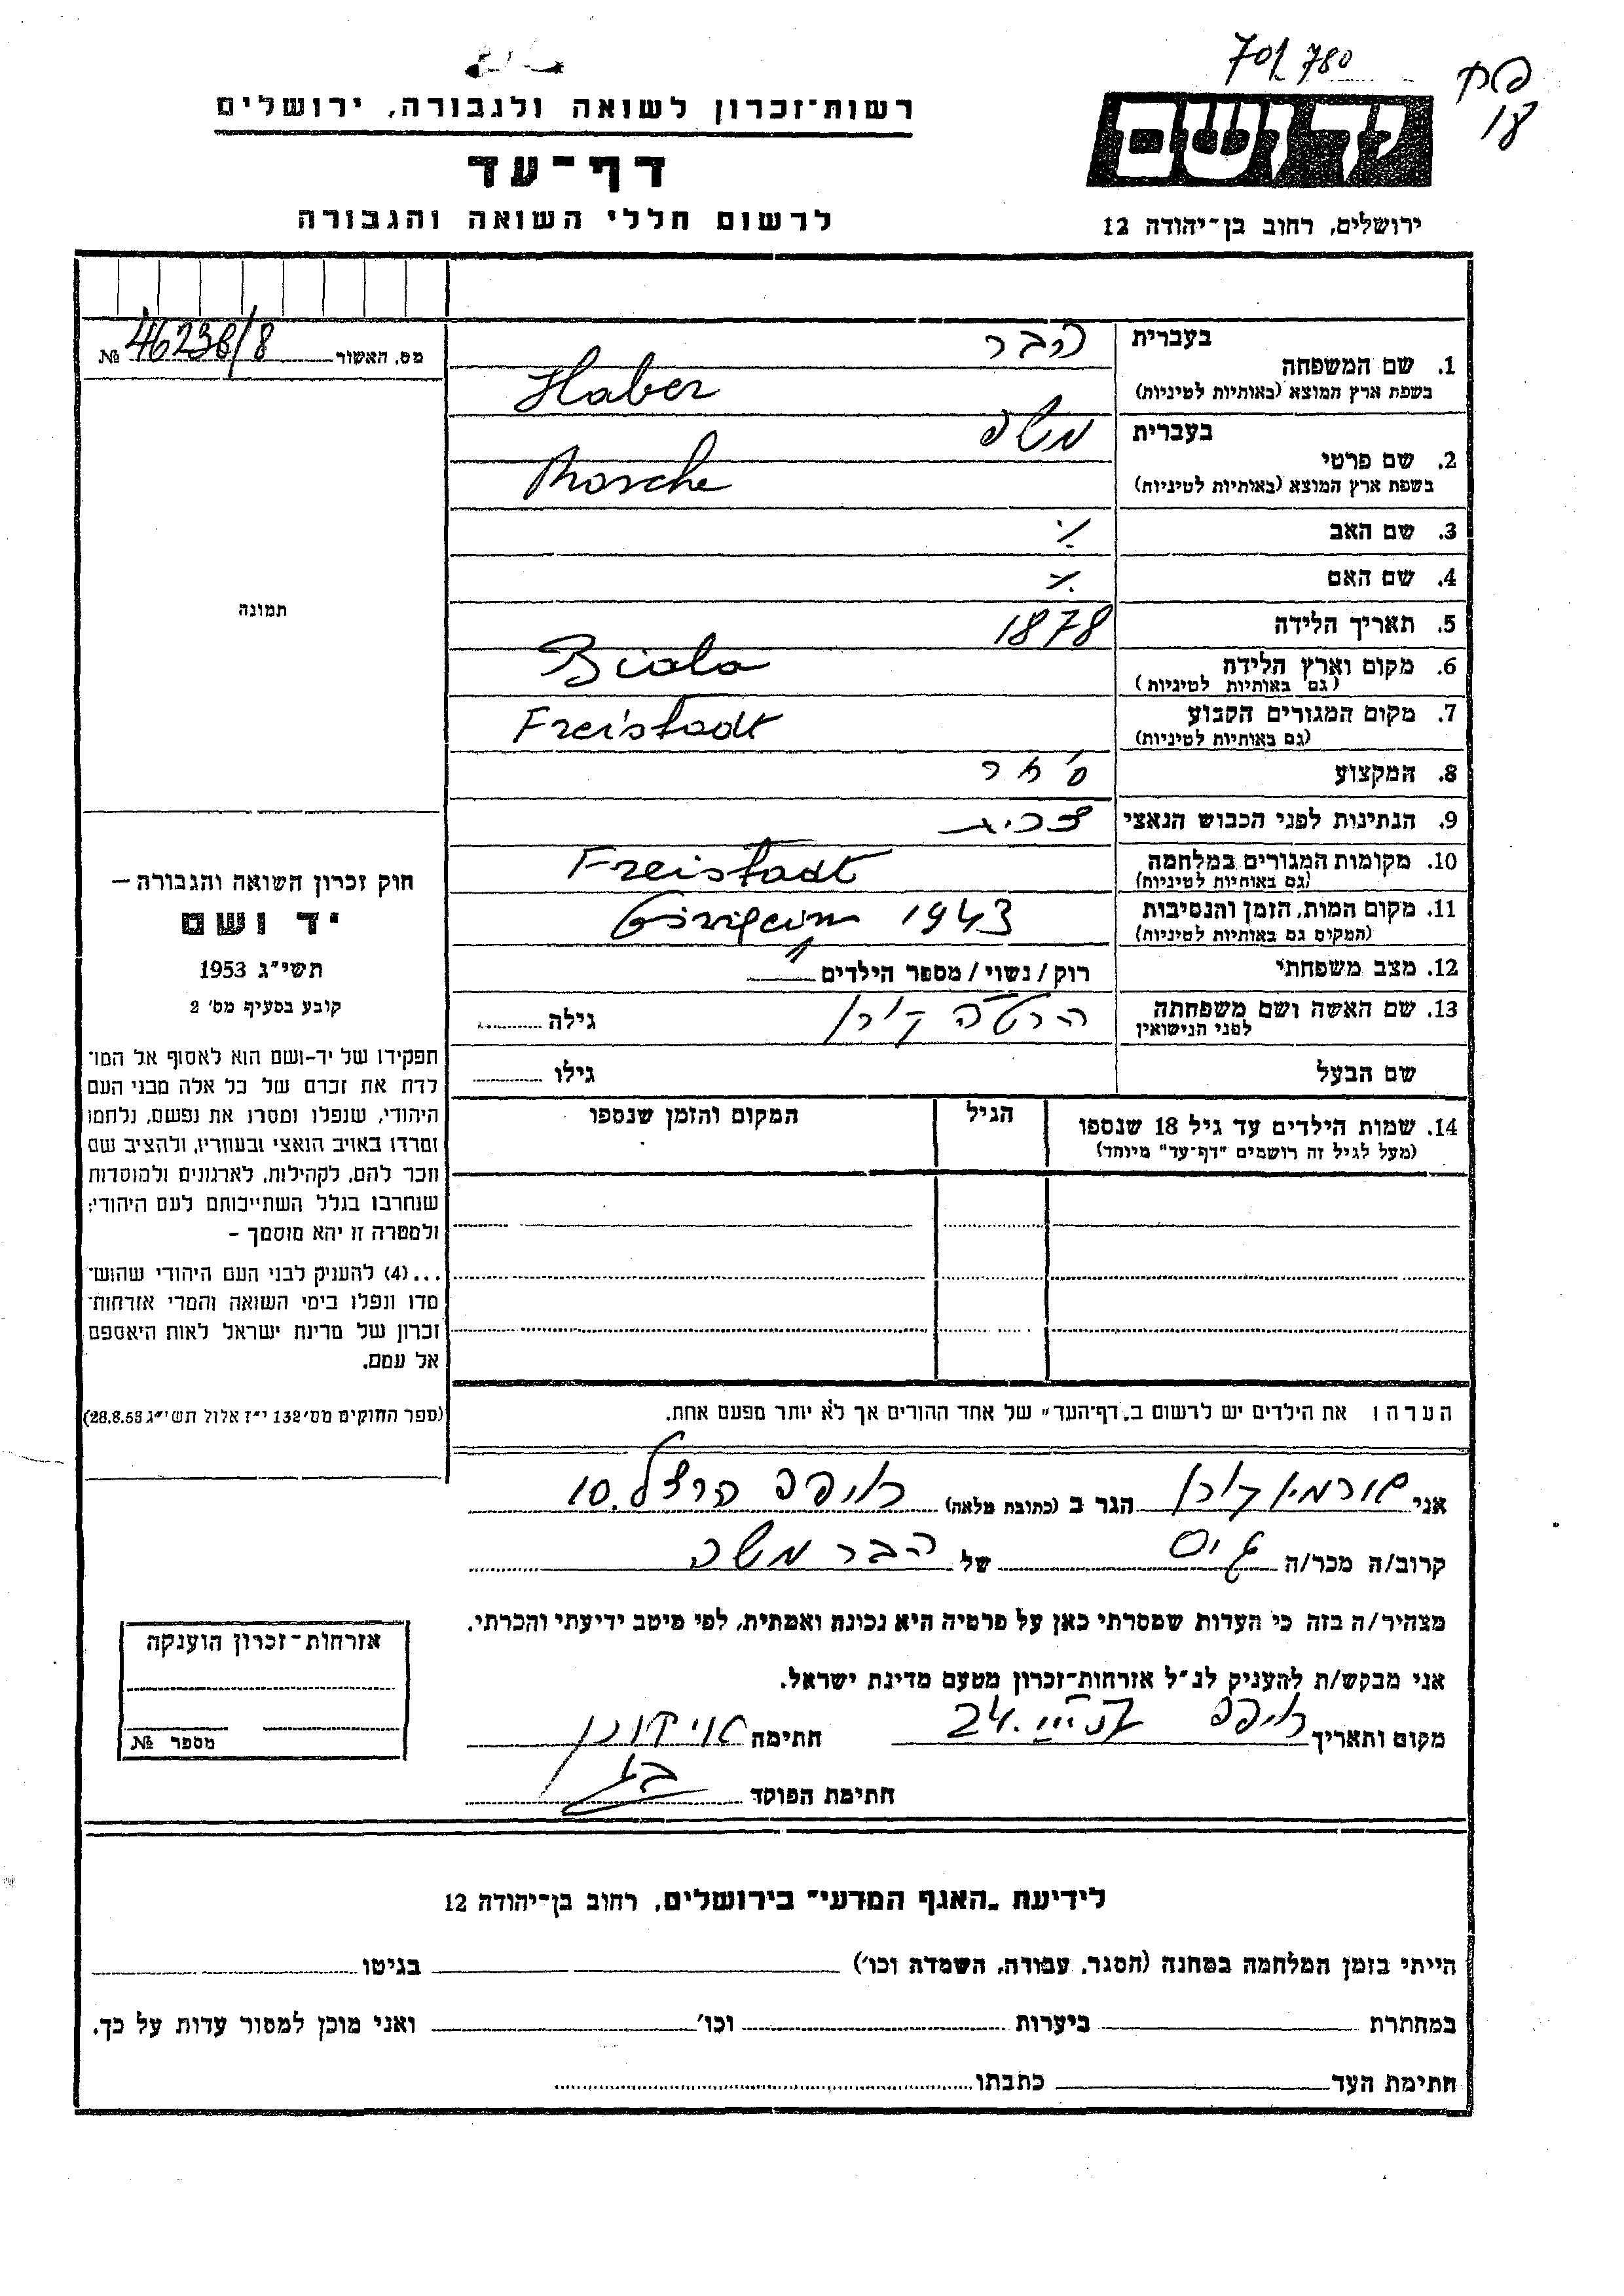 70/780
יד ושם
ירושלים, רחוב בן־יהודה 12
רשות־זכרון לשואה ולגבורה, ירושלים
דף־עד
לרשום חללי השואה והגבורה
מס. האשור 46238/8 №
בעברית הבר
1. שם המשפחה
בשפת ארץ המוצא (באותיות לטיניות) Haber
בעברית משה
2. שם פרטי
בשפת ארץ המוצא (באותיות לטיניות) Mosche
3. שם האב
4. שם האם
5. תאריך הלידה 1878
6. מקום וארץ הלידה Biala
(גם באותיות לטיניות)
7. מקום המגורים הקבוע Freistadt
(גם באותיות לטיניות)
8. המקצוע סוחר
9. הנתינות לפני הכבוש הנאצי
10. מקומות המגורים במלחמה Freistadt
(גם באותיות לטיניות)
11. מקום המות, הזמן והנסיבות 1943
(המקום גם באותיות לטיניות)
12. מצב משפחתי רוק/נשוי/מספר הילדים
13. שם האשה ושם משפחתה הרטה קורן גילה
לפני הנישואין
שם הבעל גילו
14. שמות הילדים עד גיל 18 שנספו הגיל המקום והזמן שנספו
(מעל לגיל זה רושמים "דף־עד" מיוחד)
הערה: את הילדים יש לרשום ב„דף־העד" של אחד ההורים אך לא יותר מפעם אחת.
תמונה
חוק זכרון השואה והגבורה —
יד ושם
תשי"ג 1953
קובע בסעיף מס' 2
תפקידו של יד-ושם הוא לאסוף אל המו־
לדת את זכרם של כל אלה מבני העם
היהודי, שנפלו ומסרו את נפשם, נלחמו
ומרדו באויב הנאצי ובעוזריו, ולהציב שם
וזכר להם, לקהילות, לארגונים ולמוסדות
שנחרבו בגלל השתייכותם לעם היהודי;
ולמטרה זו יהא מוסמך –
...(4) להעניק לבני העם היהודי שהוש־
מדו ונפלו בימי השואה והמרי אזרחות־
זכרון של מדינת ישראל לאות היאספם
אל עמם.
(ספר החוקים מס' 132 י"ז אלול תשי"ג 28.8.53)
אני קורן הגר ב (כתובת מלאה) חיפה הרצל 10
קרוב/ה מכר/ה גיס של הבר משה
מצהיר/ה בזה כי העדות שמסרתי כאן על פרטיה היא נכונה ואמתית, לפי מיטב ידיעתי והכרתי.
אני מבקש/ת להעניק לנ"ל אזרחות־זכרון מטעם מדינת ישראל.
מקום ותאריך חיפה 24. חתימה
חתימת הפוקד
אזרחות־זכרון הוענקה
מספר №
לידיעת „האגף המדעי" בירושלים, רחוב בן־יהודה 12
הייתי בזמן המלחמה במחנה (הסגר, עבודה, השמדה וכו') בגיטו
במחתרת ביערות וכו' ואני מוכן למסור עדות על כך.
חתימת העד כתבתו